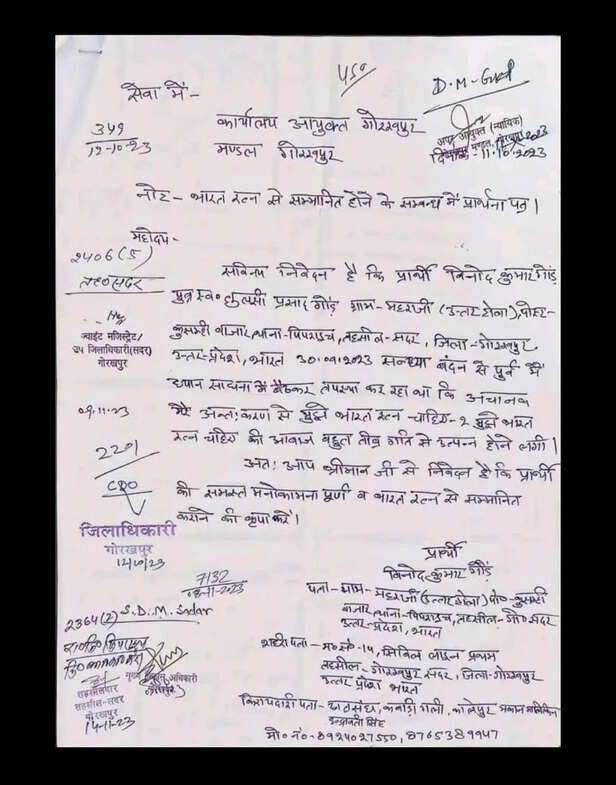 सेवा में-
450
D.M-Guest
349
12-10-23
कार्यालय आयुक्त गोरखपुर
मण्डल गोरखपुर
अपर आयुक्त (न्यायिक)
दिनांक-11.10.2023
नोट- भारत रत्न से सम्मानित होने के सम्बन्ध में प्रार्थना पत्र।
महोदय-
2406(5)
तह०सदर
सविनय निवेदन है कि प्रार्थी विनोद कुमार गौंड़
पुत्र स्व० तुलसी प्रसाद गौंड़ ग्राम-महराजी (उत्तर टोला), पोस्ट-
कुसम्ही बाजार, थाना-पिपराइच, तहसील-सदर, जिला-गोरखपुर,
उत्तर-प्रदेश, भारत 30.09.2023 सन्ध्या बंदन से पुर्व में
ध्यान साधना में बैठकर तपस्या कर रहा था कि अचानक
मेरे अन्तःकरण से मुझे भारत रत्न चाहिए-2 मुझे भारत
रत्न चाहिए की आवाज बहुत तीव्र गति से उत्पन्न होने लगी।
अतः आप श्रीमान जी से निवेदन है कि प्रार्थी
की समस्त मनोकामना पूर्ण व भारत रत्न से सम्मानित
कराने की कृपा करें।
ज्वाईंट मजिस्ट्रेट/
उप जिलाधिकारी(सदर)
गोरखपुर
09.11.23
2201
CRO
जिलाधिकारी
गोरखपुर
12/10/23
प्रार्थी
विनोद कुमार गौंड़
7132
08-11-2023
पता-ग्राम-महराजी (उत्तर टोला) पो०-कुसम्ही
बाजार, थाना-पिपराइच, तहसील-गो० सदर
उत्तर-प्रदेश, भारत
2364(2) S.D.M. Sadar
मुख्य राजस्व अधिकारी
गोरखपुर
तहसीलदार
तहसील-सदर
गोरखपुर
14-11-23
शहरी पता- म०सं०-14, सिविल लाइन प्रथम
तहसील-गोरखपुर सदर, जिला-गोरखपुर
उत्तर प्रदेश भारत
किरायेदारी पता- कबाड़ी गली,
इन्द्रावती सिंह
मो० नं०-8924027550, 8765389947